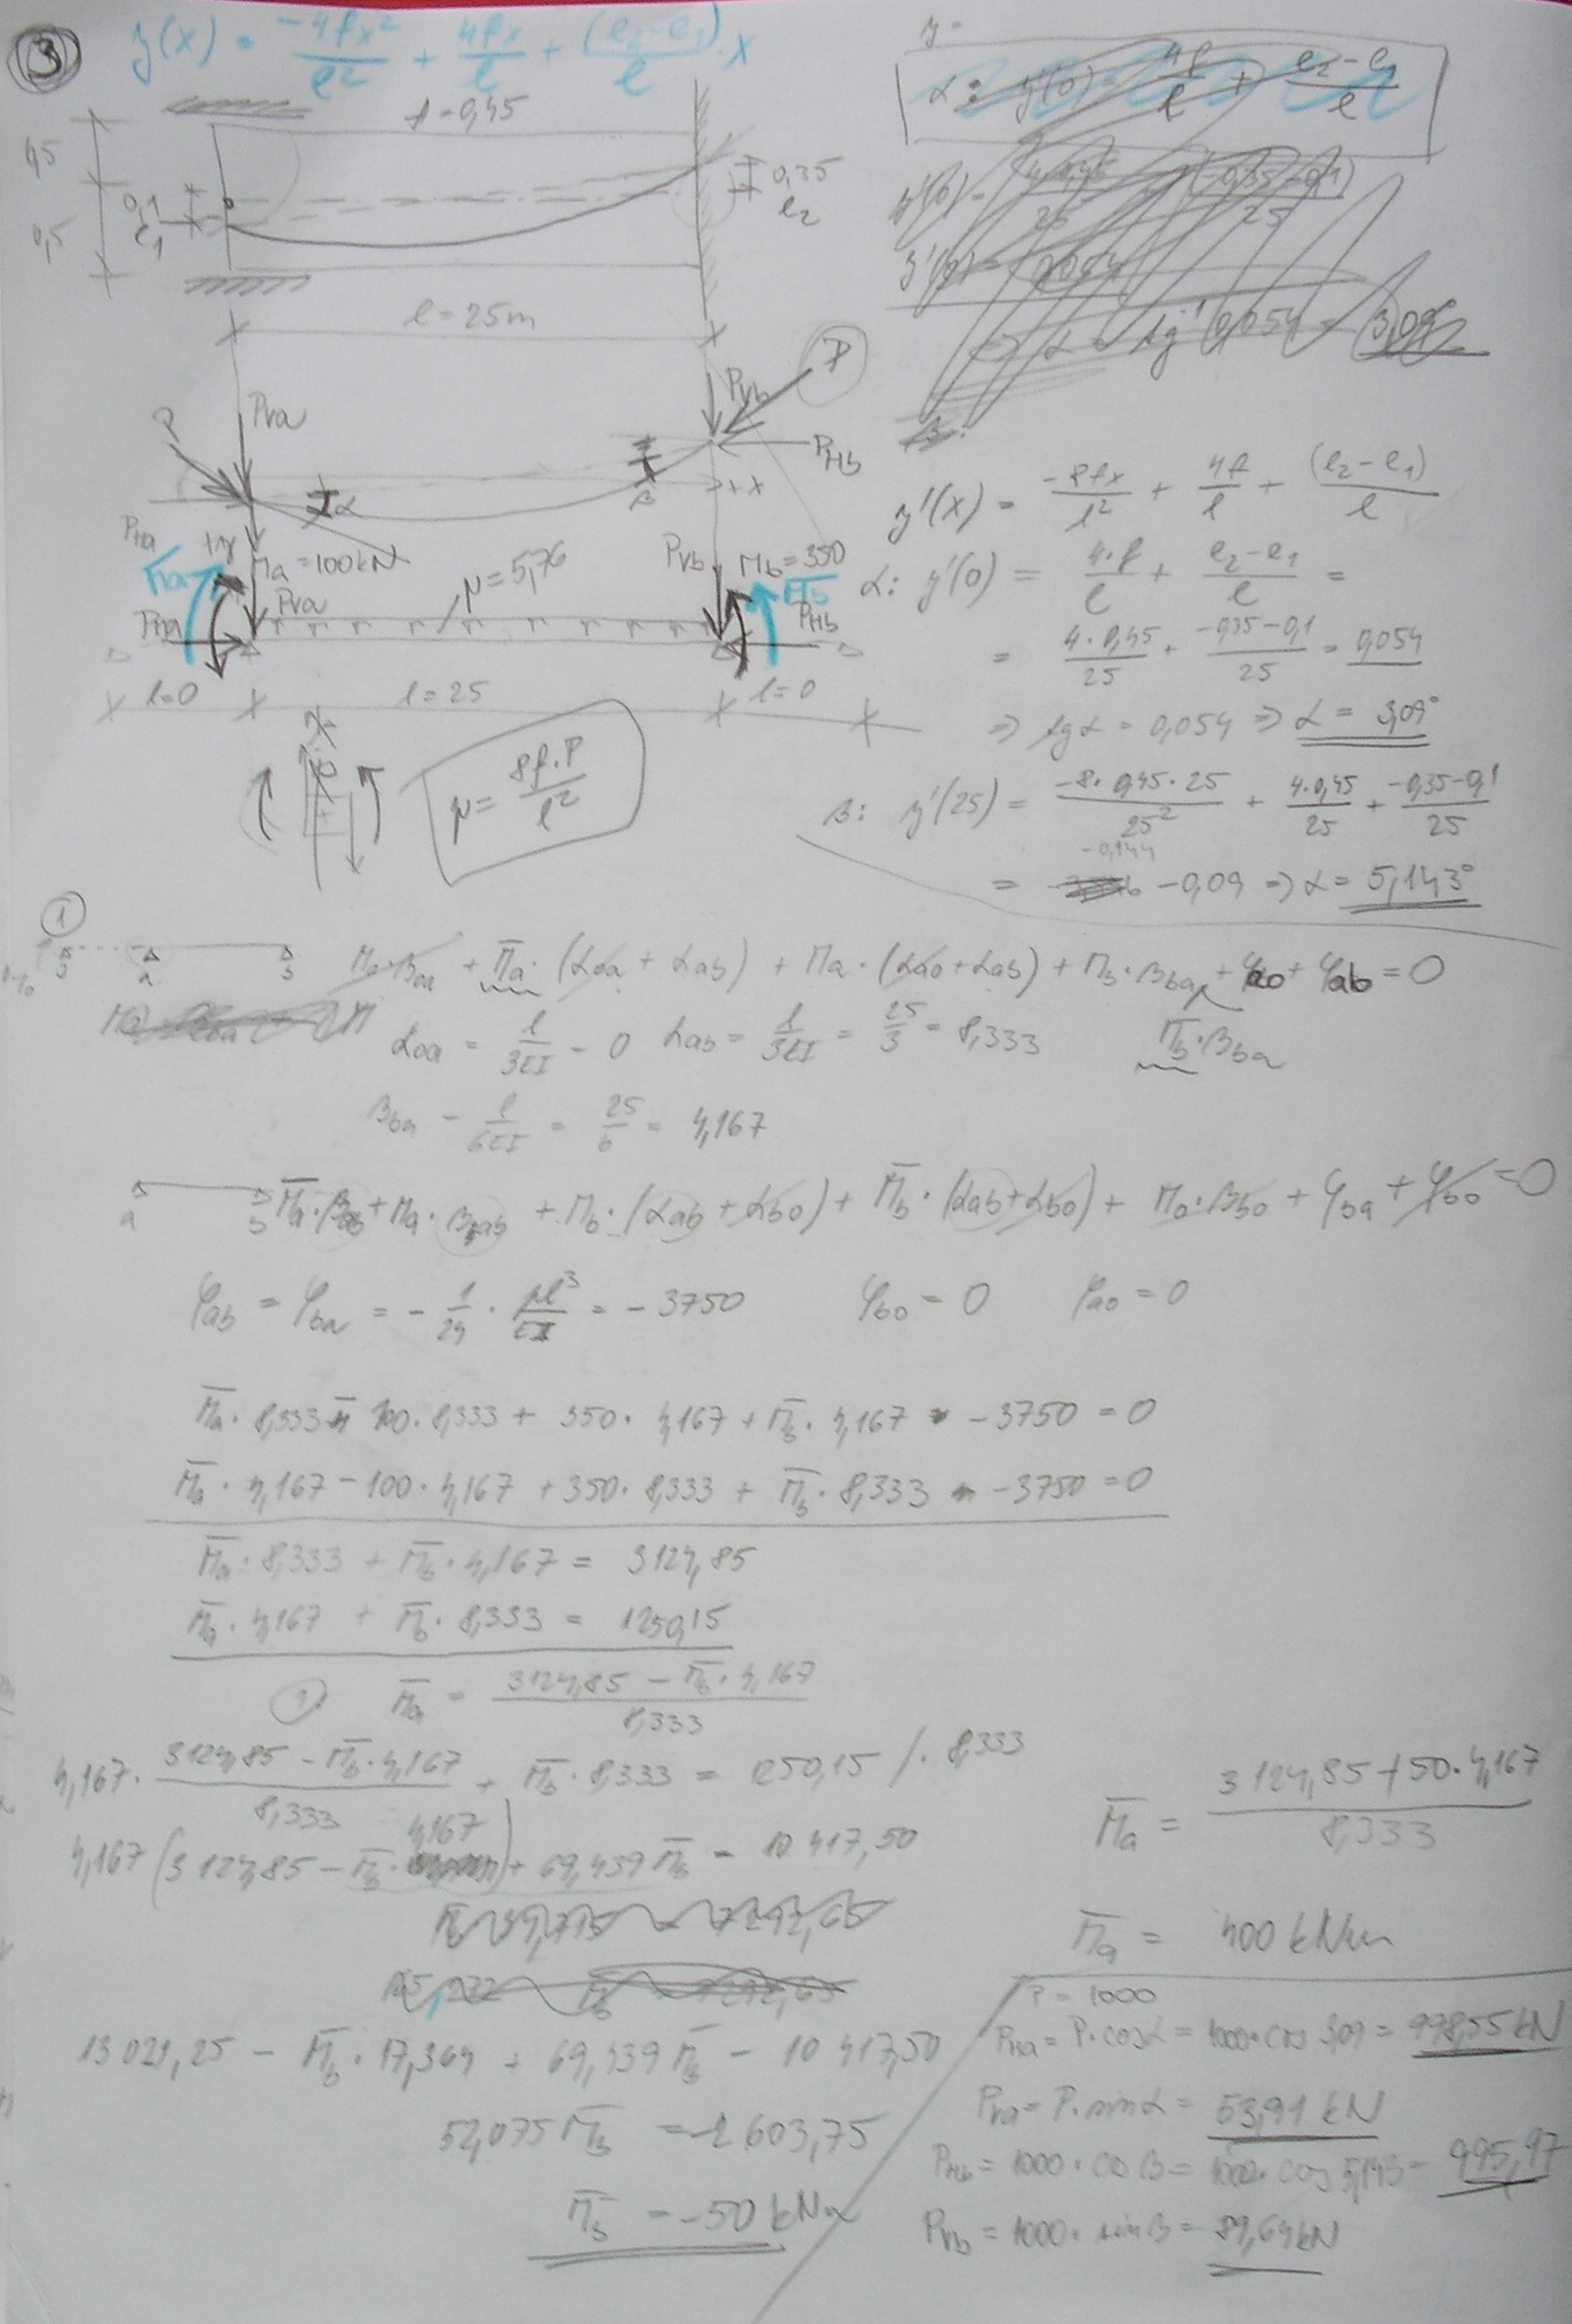 3
y(x) = -4fx²/l² + 4fx/l + (e2-e1)/l · x
f=0,45
0,1
e1
0,5
0,35
e2
l = 25m
P
Pva
Pvb
P
PHb
α
β
+x
PHa
+y
Ma =100kN
Pva
Ma
p = 5,76
Pvb
Mb=350
Mb
PHa
PHb
l=0
l=25
l=0
p = 8f·P/l²
y=
α: y'(0) = 4f/l + e2-e1/l
y'(x) = -8fx/l² + 4f/l + (e2-e1)/l
α: y'(0) = 4·f/l + e2-e1/l =
= 4·0,45/25 + -0,35-0,1/25 = 0,054
=> tgα = 0,054 => α = 3,09°
β: y'(25) = -8·0,45·25/25² + 4·0,45/25 + -0,35-0,1/25
-0,144
= -0,09 => α= 5,143°
1
M0·β0a + M̄a·(α0a + αab) + Ma·(αa0+αab) + Mb·βba + φa0 + φab = 0
M̄b·βba
α0a = l/3EI = 0 αab = l/3EI = 25/3 = 8,333
βba = l/6EI = 25/6 = 4,167
a b M̄a·βab + Ma·βab + Mb·(αab + αb0) + M̄b·(αab+αb0) + M0·βb0 + φba + φb0 = 0
φab = φba = -1/24 · pl³/EI = -3750 φb0 = 0 φa0 = 0
M̄a · 8,333 - 100·8,333 + 350·4,167 + M̄b·4,167 -3750 = 0
M̄a · 4,167 - 100·4,167 + 350·8,333 + M̄b·8,333 -3750 = 0
M̄a·8,333 + M̄b·4,167 = 3124,85
M̄a·4,167 + M̄b·8,333 = 1250,15
1 M̄a = 3124,85 - M̄b·4,167/8,333
4,167· 3124,85 - M̄b·4,167/8,333 + M̄b·8,333 = 1250,15 /·8,333
4,167
4,167(3124,85 - M̄b· )+ 69,439M̄b = 10417,50
13021,25 - M̄b·17,364 + 69,439M̄b = 10417,50
52,075M̄b = -2603,75
M̄b = -50 kNm
M̄a = 3124,85+50·4,167/8,333
M̄a = 400 kNm
P = 1000
PHa = P·cosα = 1000·cos 3,09 = 998,55 kN
Pva = P·sinα = 53,91 kN
PHb = 1000·cosβ = 1000·cos 5,143 = 995,97
Pvb = 1000·sinβ = 89,64kN